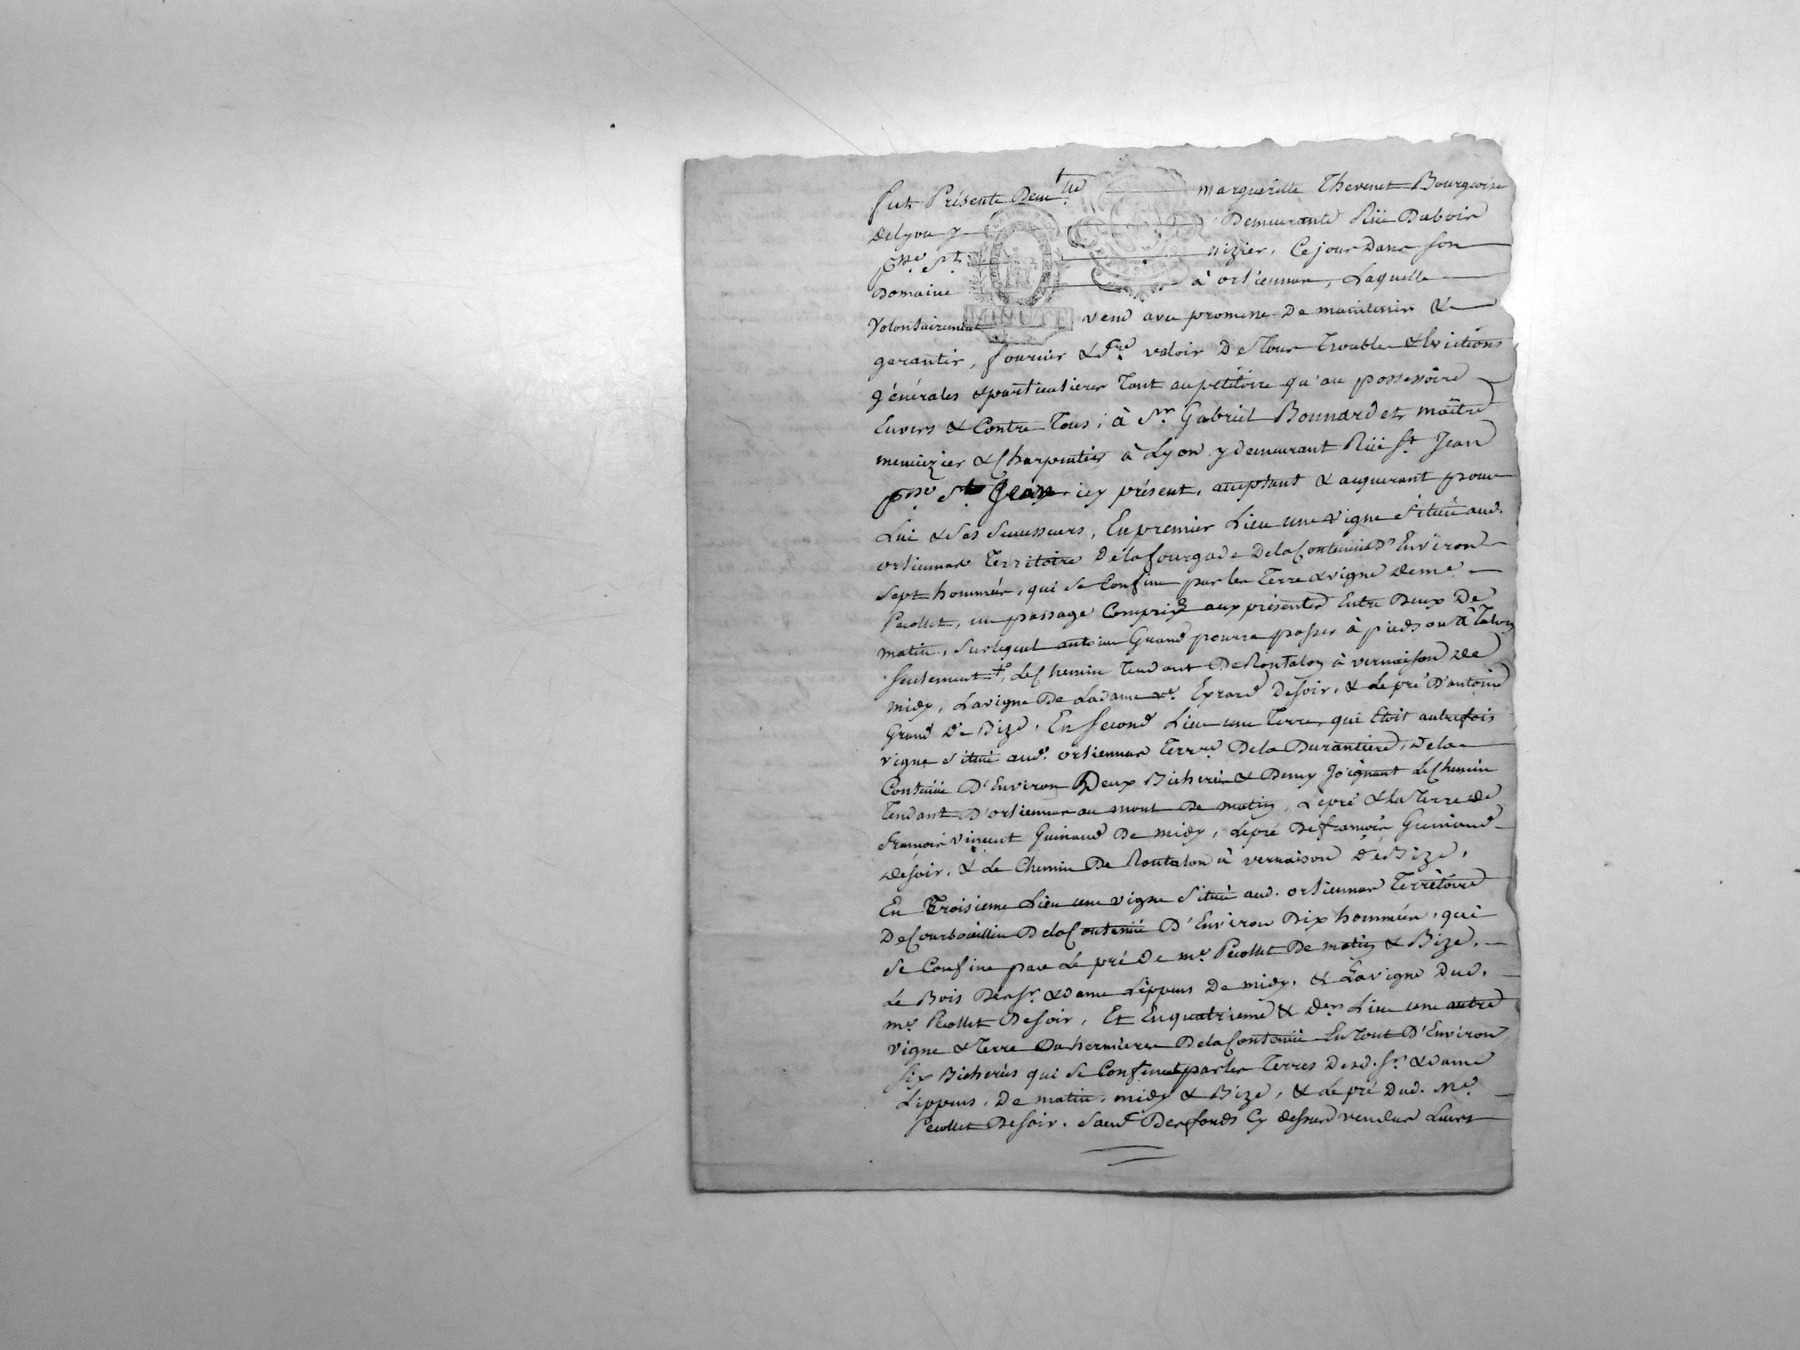 fut Présente Dem.lle margueritte Thevenet Bourgeoise
de Lyon y Demeurante Rüe Dubois
psse St nizier, Ce jour Dans son
Domaine à orliennas, Laquelle
MINUTE
Volontairement vend avec promesse De maintenir &
garantir, fournir & f.re valoir De Tous Troubles & Evictions
générales & particulieres Tant au pétitoire qu'au possessoire
Envers & Contre Tous, à Sr. Gabriel Bonnardet maître
menuizier & Charpentier à Lyon y demeurant Rüe St. Jean
psse St Jean icy présent, acceptant & acquerant pour
Lui & Ses Successeurs, En premier Lieu une vigne Située aud.
orliennas Territoire De la fourgade De la Contenue D'Environ
Sept hommées, qui Se Confine par les Terre & vigne de me
Pecollet, un passage Compris aux présentes Entre Deux De
matin, Sur lequel antoine Grand pourra passer à pieds ou à
Seulement, Le Chemin Tendant De Rontalon à vernaison De
midy, La vigne De La dame ve. Eyrard De soir, & Le pré D'antoine
Grand De Bize. En Second Lieu une Terre qui Etoit autrefois
vigne Située aud. orliennas Terre De la Durantiere, De la
Contenüe D'Environ Deux Bicherées & Demy Joignant Le Chemin
Tendant D'orliennas au mont De matin, Le pré & La Terre de
francois vincent Guinand De midy, Le pré De francois Guinand
De soir, & Le Chemin De Rontalon à vernaison De Bize,
En Troisieme Lieu une vigne Située aud. orliennas Territoire
De Courbouillin De la Contenüe D'Environ Dix hommées, qui
Se Confine par Le pré De me Pecollet De matin & Bize,
Le Bois Des Sr. & dame Lippens De midy, & La vigne Dud.
me Pecollet De soir, Et En quatrieme & Der Lieu une autre
vigne & Terre De la Contenüe En Tout D'Environ
Six Bicherées qui Se Confinent par les Terres Desd. Sr. & dame
Lippens, De matin, midy & Bize, & Le pré Dud. Me
Pecollet De soir. Sauf Des fonds Cy dessus vendus Leurs